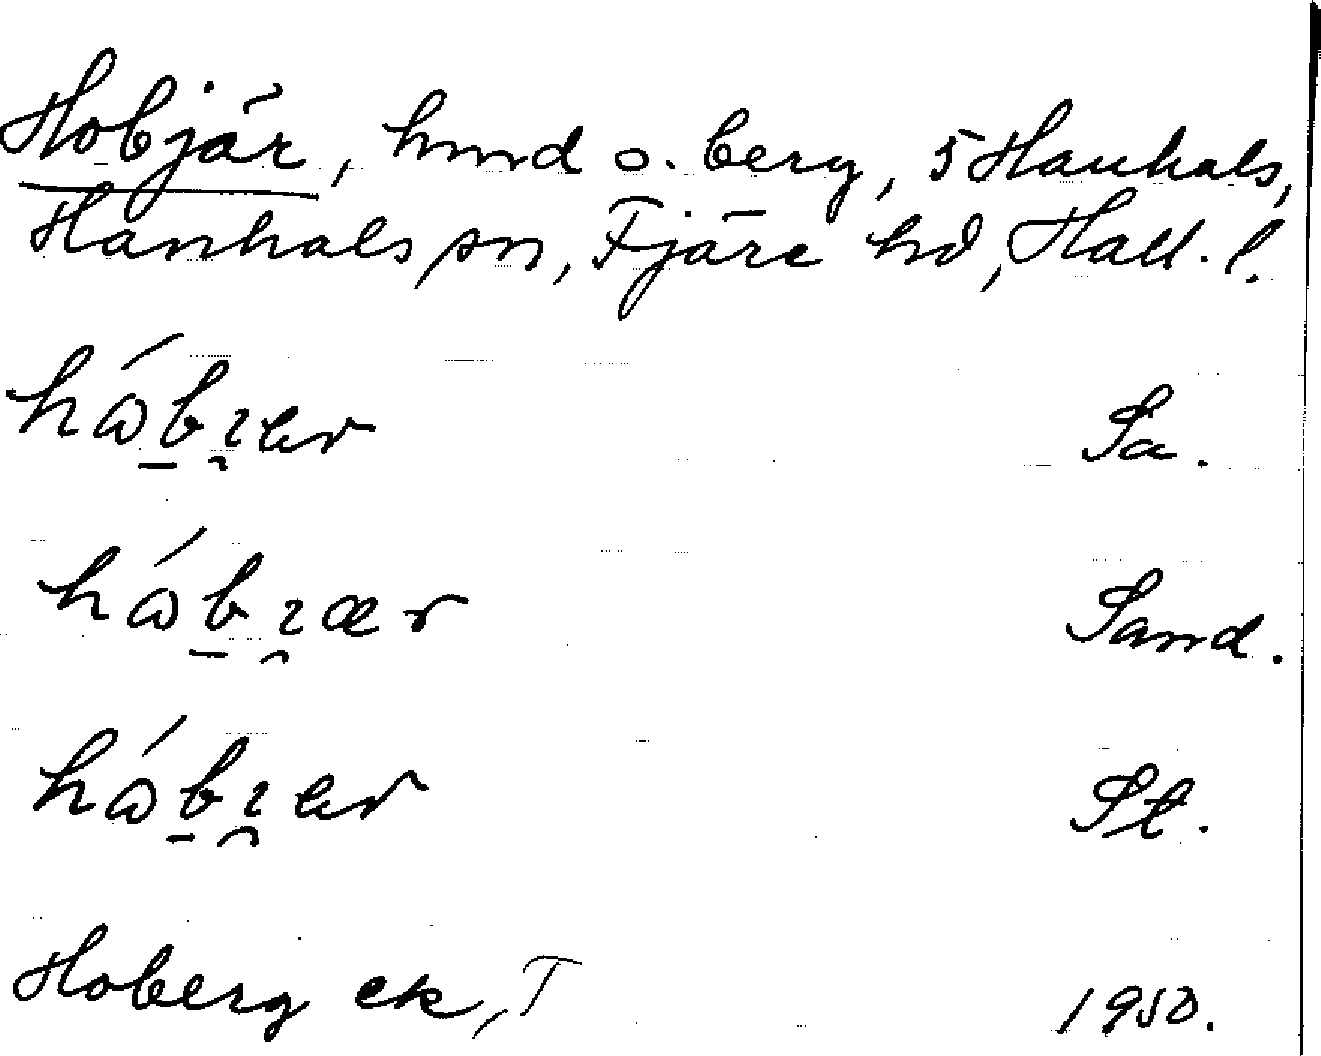 Hobjär, hmd o. berg, 5 Hanhals,
Hanhals sn, Fjäre hd, Hall. l.
hábı̯ær Sa.
hábı̯ær Sand.
hábı̯ær St.
Hoberg ek, T 1950.